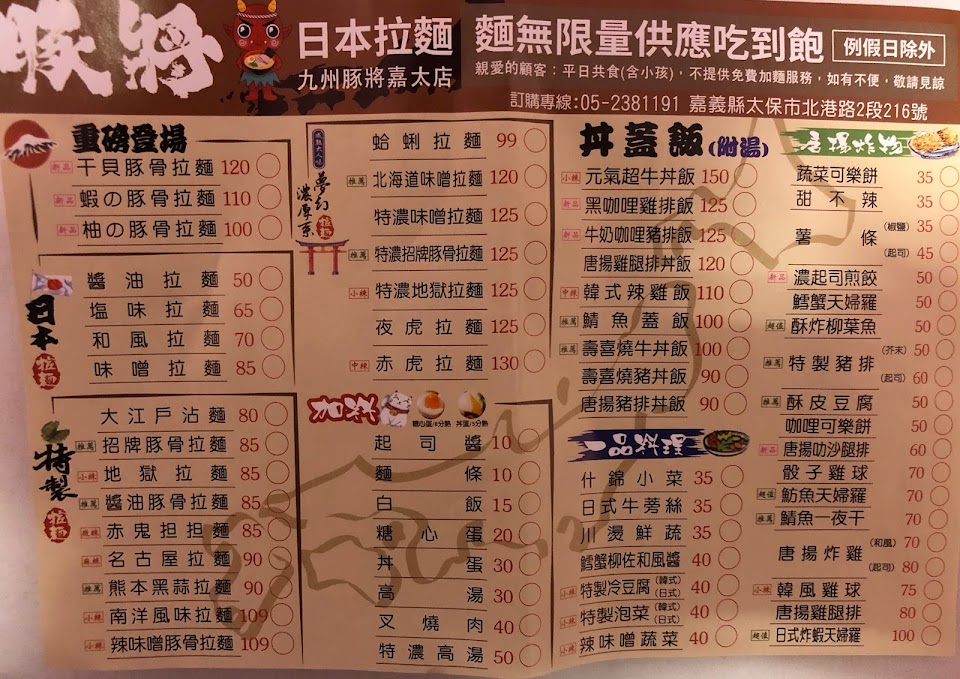 豚將
日本拉麵
九州豚將嘉太店
麵無限量供應吃到飽 例假日除外
親愛的顧客：平日共食(含小孩)，不提供免費加麵服務，如有不便，敬請見諒
訂購專線:05-2381191 嘉義縣太保市北港路2段216號
重磅登場
新品 干貝豚骨拉麵 120
新品 蝦の豚骨拉麵 110
新品 柚の豚骨拉麵 100
日本 拉麵
醬油拉麵 50
塩味拉麵 65
和風拉麵 70
味噌拉麵 85
特製 拉麵
大江戶沾麵 80
推薦 招牌豚骨拉麵 85
小辣 地獄拉麵 85
推薦 醬油豚骨拉麵 85
赤鬼担担麵 85
麻辣 名古屋拉麵 90
推薦 熊本黑蒜拉麵 90
小辣 南洋風味拉麵 109
小辣 辣味噌豚骨拉麵 109
夢幻濃厚系 拉麵
蛤蜊拉麵 99
推薦 北海道味噌拉麵 120
特濃味噌拉麵 125
推薦 特濃招牌豚骨拉麵 125
小辣 特濃地獄拉麵 125
夜虎拉麵 125
中辣 赤虎拉麵 130
加料
糖心蛋/8分熟 丼蛋/5分熟
起司醬 10
麵條 10
白飯 15
糖心蛋 20
丼蛋 30
高湯 30
叉燒肉 40
特濃高湯 50
丼蓋飯(附湯)
小辣 元氣超牛丼飯 150
新品 黑咖哩雞排飯 125
新品 牛奶咖哩豬排飯 125
唐揚雞腿排丼飯 120
中辣 韓式辣雞飯 110
推薦 鯖魚蓋飯 100
推薦 壽喜燒牛丼飯 100
壽喜燒豬丼飯 90
唐揚豬排丼飯 90
一品料理
什錦小菜 35
日式牛蒡絲 35
川燙鮮蔬 35
鱈蟹柳佐和風醬 40
小辣 特製冷豆腐(韓式)(日式) 40
小辣 特製泡菜(韓式)(日式) 40
小辣 辣味噌蔬菜 40
唐揚炸物
蔬菜可樂餅 35
甜不辣 35
薯條 (椒鹽) 35
(起司) 45
新品 濃起司煎餃 50
鱈蟹天婦羅 50
超值 酥炸柳葉魚 50
推薦 特製豬排 (芥末) 50
(起司) 60
推薦 酥皮豆腐 50
咖哩可樂餅 50
新品 唐揚叻沙腿排 60
骰子雞球 70
超值 魴魚天婦羅 70
推薦 鯖魚一夜干 70
唐揚炸雞 (和風) 70
(起司) 80
小辣 韓風雞球 75
唐揚雞腿排 80
超值 日式炸蝦天婦羅 100